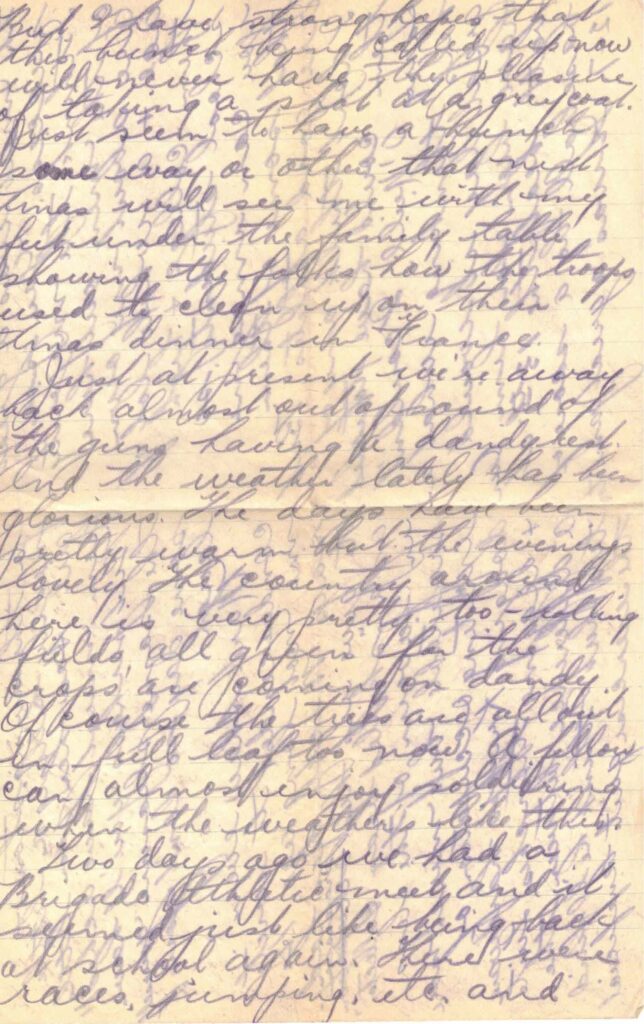 But I have strong hopes that
this bunch being called up now
will never have the pleasure
of taking a shot at a greycoat.
Just seem to have a hunch
some way or other that next
Xmas will see me with my
feet under the family table
showing the folks how the troops
used to clean up on their
Xmas dinner in France.
Just at present we're away
back almost out of sound of
the guns having a dandy rest.
And the weather lately has been
glorious. The days have been
pretty warm but the evenings
lovely. The country around
here is very pretty too - rolling
fields all green for the
crops are coming on dandy.
Of course the trees are all out
in full leaf too now. A fellow
can almost enjoy soldiering
when the weather's like this.
Two days ago we had a
Brigade Athletic meet and it
seemed just like being back
at school again. There were
races, jumping, etc. and